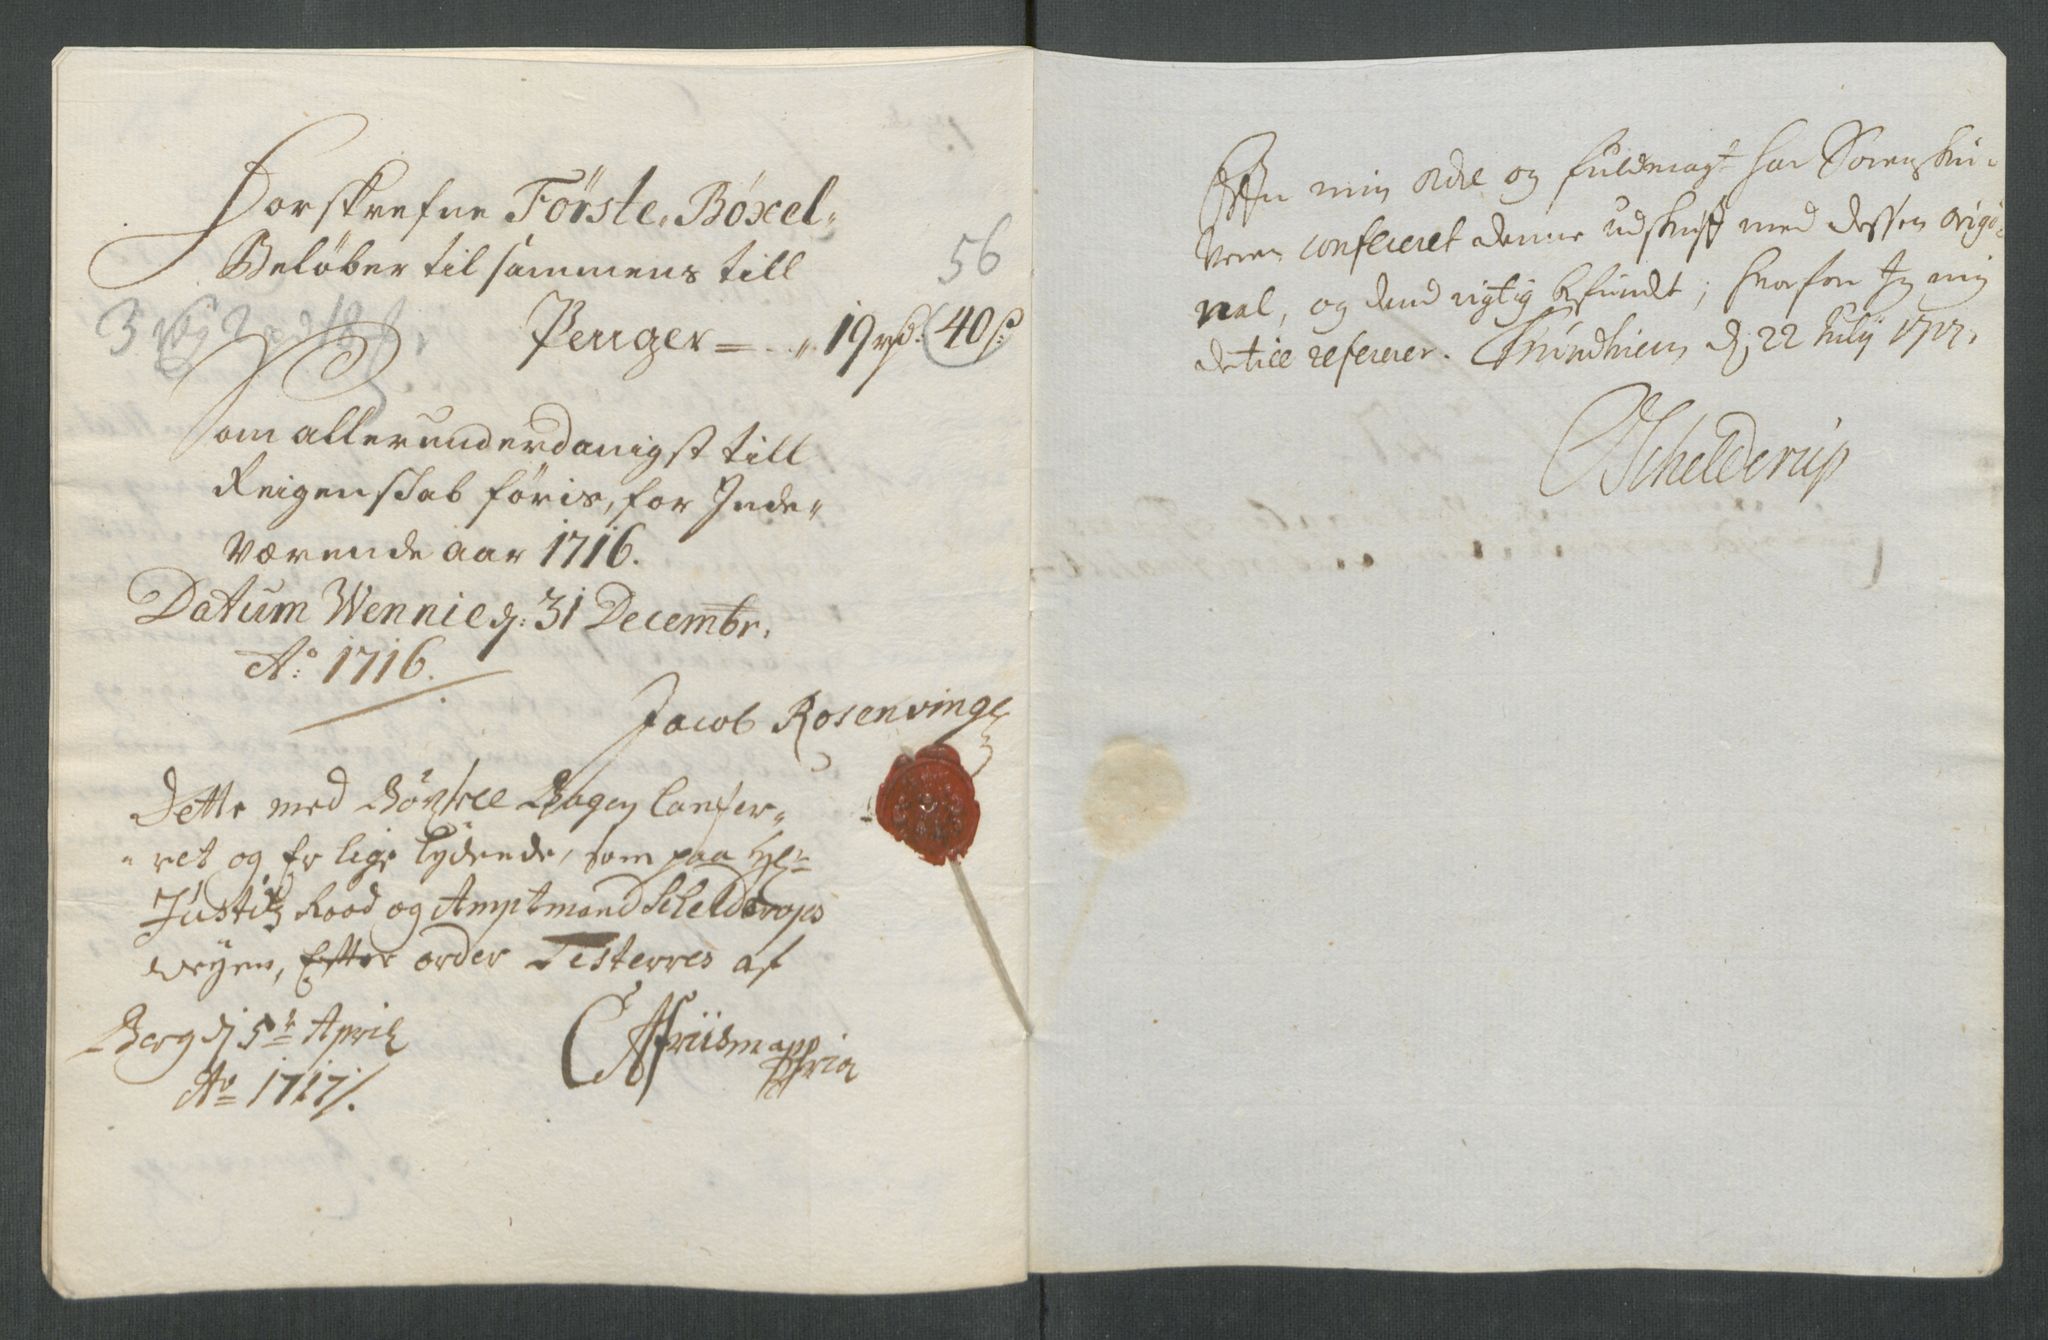 Forskrefne Förste Böxel
Beløber til sammens till
56
3
Penger = 19 rd. 40 s:
Som allerunderdanigst till
Reigenskab føris, for Inde„
Værende aar 1716.
Datum Wennie d: 31 Decembr.
Ao: 1716.
Jacob Rosenvinge
Dette med Böxsel Bogen Confer„
„ret og Er lige lydende, som paa Hr
Justitz Raad og Amptmand Schelderops
veyen, Efter order Testerres af
Berg dj 5te April
Ao 1717/.
Friis mapp
pria
Efter min ordre og fuldmagt har Sorenskri„
veren confereret denne udskrift med dessen origi„
nal, og dend rigtig befundt; hvorfore Jeg mig
dertill referer. Trundhiem d. 22 July 1717.
Schelderup